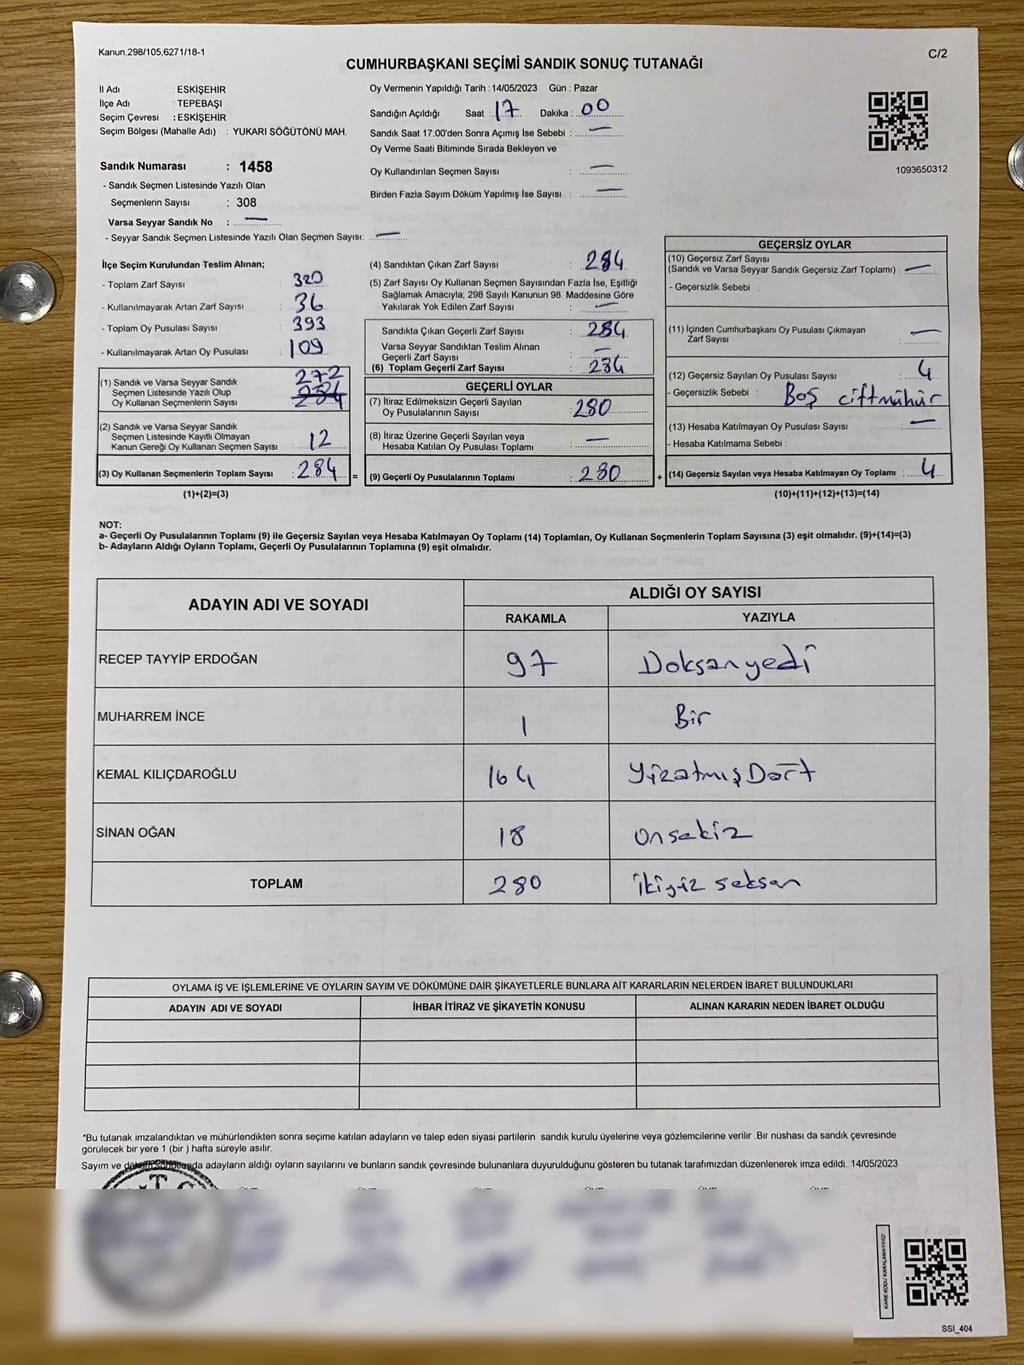 Kanun,298/105,6271/18-1
C/2
CUMHURBAŞKANI SEÇİMİ SANDIK SONUÇ TUTANAĞI
İl Adı : ESKİŞEHİR
İlçe Adı : TEPEBAŞI
Seçim Çevresi : ESKİŞEHİR
Seçim Bölgesi (Mahalle Adı) : YUKARI SÖĞÜTÖNÜ MAH.
Oy Vermenin Yapıldığı Tarih : 14/05/2023 Gün : Pazar
Sandığın Açıldığı Saat : 17 Dakika : 00
Sandık Saat 17:00'den Sonra Açımış İse Sebebi : —
Oy Verme Saati Bitiminde Sırada Bekleyen ve
Oy Kullandırılan Seçmen Sayısı : —
Birden Fazla Sayım Döküm Yapılmış İse Sayısı : —
1093650312
Sandık Numarası : 1458
- Sandık Seçmen Listesinde Yazılı Olan
Seçmenlerin Sayısı : 308
Varsa Seyyar Sandık No : —
- Seyyar Sandık Seçmen Listesinde Yazılı Olan Seçmen Sayısı: —
İlçe Seçim Kurulundan Teslim Alınan;
- Toplam Zarf Sayısı : 320
- Kullanılmayarak Artan Zarf Sayısı : 36
- Toplam Oy Pusulası Sayısı : 393
- Kullanılmayarak Artan Oy Pusulası : 109
(1) Sandık ve Varsa Seyyar Sandık
Seçmen Listesinde Yazılı Olup
Oy Kullanan Seçmenlerin Sayısı : 272
284
(2) Sandık ve Varsa Seyyar Sandık
Seçmen Listesinde Kayıtlı Olmayan
Kanun Gereği Oy Kullanan Seçmen Sayısı : 12
(3) Oy Kullanan Seçmenlerin Toplam Sayısı : 284 =
(1)+(2)=(3)
(4) Sandıktan Çıkan Zarf Sayısı : 284
(5) Zarf Sayısı Oy Kullanan Seçmen Sayısından Fazla İse, Eşitliği
Sağlamak Amacıyla, 298 Sayılı Kanunun 98. Maddesine Göre
Yakılarak Yok Edilen Zarf Sayısı : —
Sandıkta Çıkan Geçerli Zarf Sayısı : 284
Varsa Seyyar Sandıktan Teslim Alınan
Geçerli Zarf Sayısı : —
(6) Toplam Geçerli Zarf Sayısı : 284
GEÇERLİ OYLAR
(7) İtiraz Edilmeksizin Geçerli Sayılan
Oy Pusulalarının Sayısı : 280
(8) İtiraz Üzerine Geçerli Sayılan veya
Hesaba Katılan Oy Pusulası Toplamı : —
(9) Geçerli Oy Pusulalarının Toplamı : 280 +
GEÇERSİZ OYLAR
(10) Geçersiz Zarf Sayısı
(Sandık ve Varsa Seyyar Sandık Geçersiz Zarf Toplamı) : —
- Geçersizlik Sebebi :
(11) İçinden Cumhurbaşkanı Oy Pusulası Çıkmayan
Zarf Sayısı : —
(12) Geçersiz Sayılan Oy Pusulası Sayısı : 4
- Geçersizlik Sebebi : Boş çiftmühür
(13) Hesaba Katılmayan Oy Pusulası Sayısı : —
- Hesaba Katılmama Sebebi :
(14) Geçersiz Sayılan veya Hesaba Katılmayan Oy Toplamı : 4
(10)+(11)+(12)+(13)=(14)
NOT:
a- Geçerli Oy Pusulalarının Toplamı (9) ile Geçersiz Sayılan veya Hesaba Katılmayan Oy Toplamı (14) Toplamları, Oy Kullanan Seçmenlerin Toplam Sayısına (3) eşit olmalıdır. (9)+(14)=(3)
b- Adayların Aldığı Oyların Toplamı, Geçerli Oy Pusulalarının Toplamına (9) eşit olmalıdır.
ADAYIN ADI VE SOYADI
ALDIĞI OY SAYISI
RAKAMLA YAZIYLA
RECEP TAYYİP ERDOĞAN 97 Doksanyedi
MUHARREM İNCE 1 Bir
KEMAL KILIÇDAROĞLU 164 YüzatmışDört
SİNAN OĞAN 18 onsekiz
TOPLAM 280 ikiyüz seksen
OYLAMA İŞ VE İŞLEMLERİNE VE OYLARIN SAYIM VE DÖKÜMÜNE DAİR ŞİKAYETLERLE BUNLARA AİT KARARLARIN NELERDEN İBARET BULUNDUKLARI
ADAYIN ADI VE SOYADI İHBAR İTİRAZ VE ŞİKAYETİN KONUSU ALINAN KARARIN NEDEN İBARET OLDUĞU
*Bu tutanak imzalandıktan ve mühürlendikten sonra seçime katılan adayların ve talep eden siyasi partilerin sandık kurulu üyelerine veya gözlemcilerine verilir .Bir nüshası da sandık çevresinde
görülecek bir yere 1 (bir ) hafta süreyle asılır.
Sayım ve döküm sonucunda adayların aldığı oyların sayılarını ve bunların sandık çevresinde bulunanlara duyurulduğunu gösteren bu tutanak tarafımızdan düzenlenerek imza edildi. 14/05/2023
T.C.
KARE KODU KARALAMAYINIZ!
SSI_404